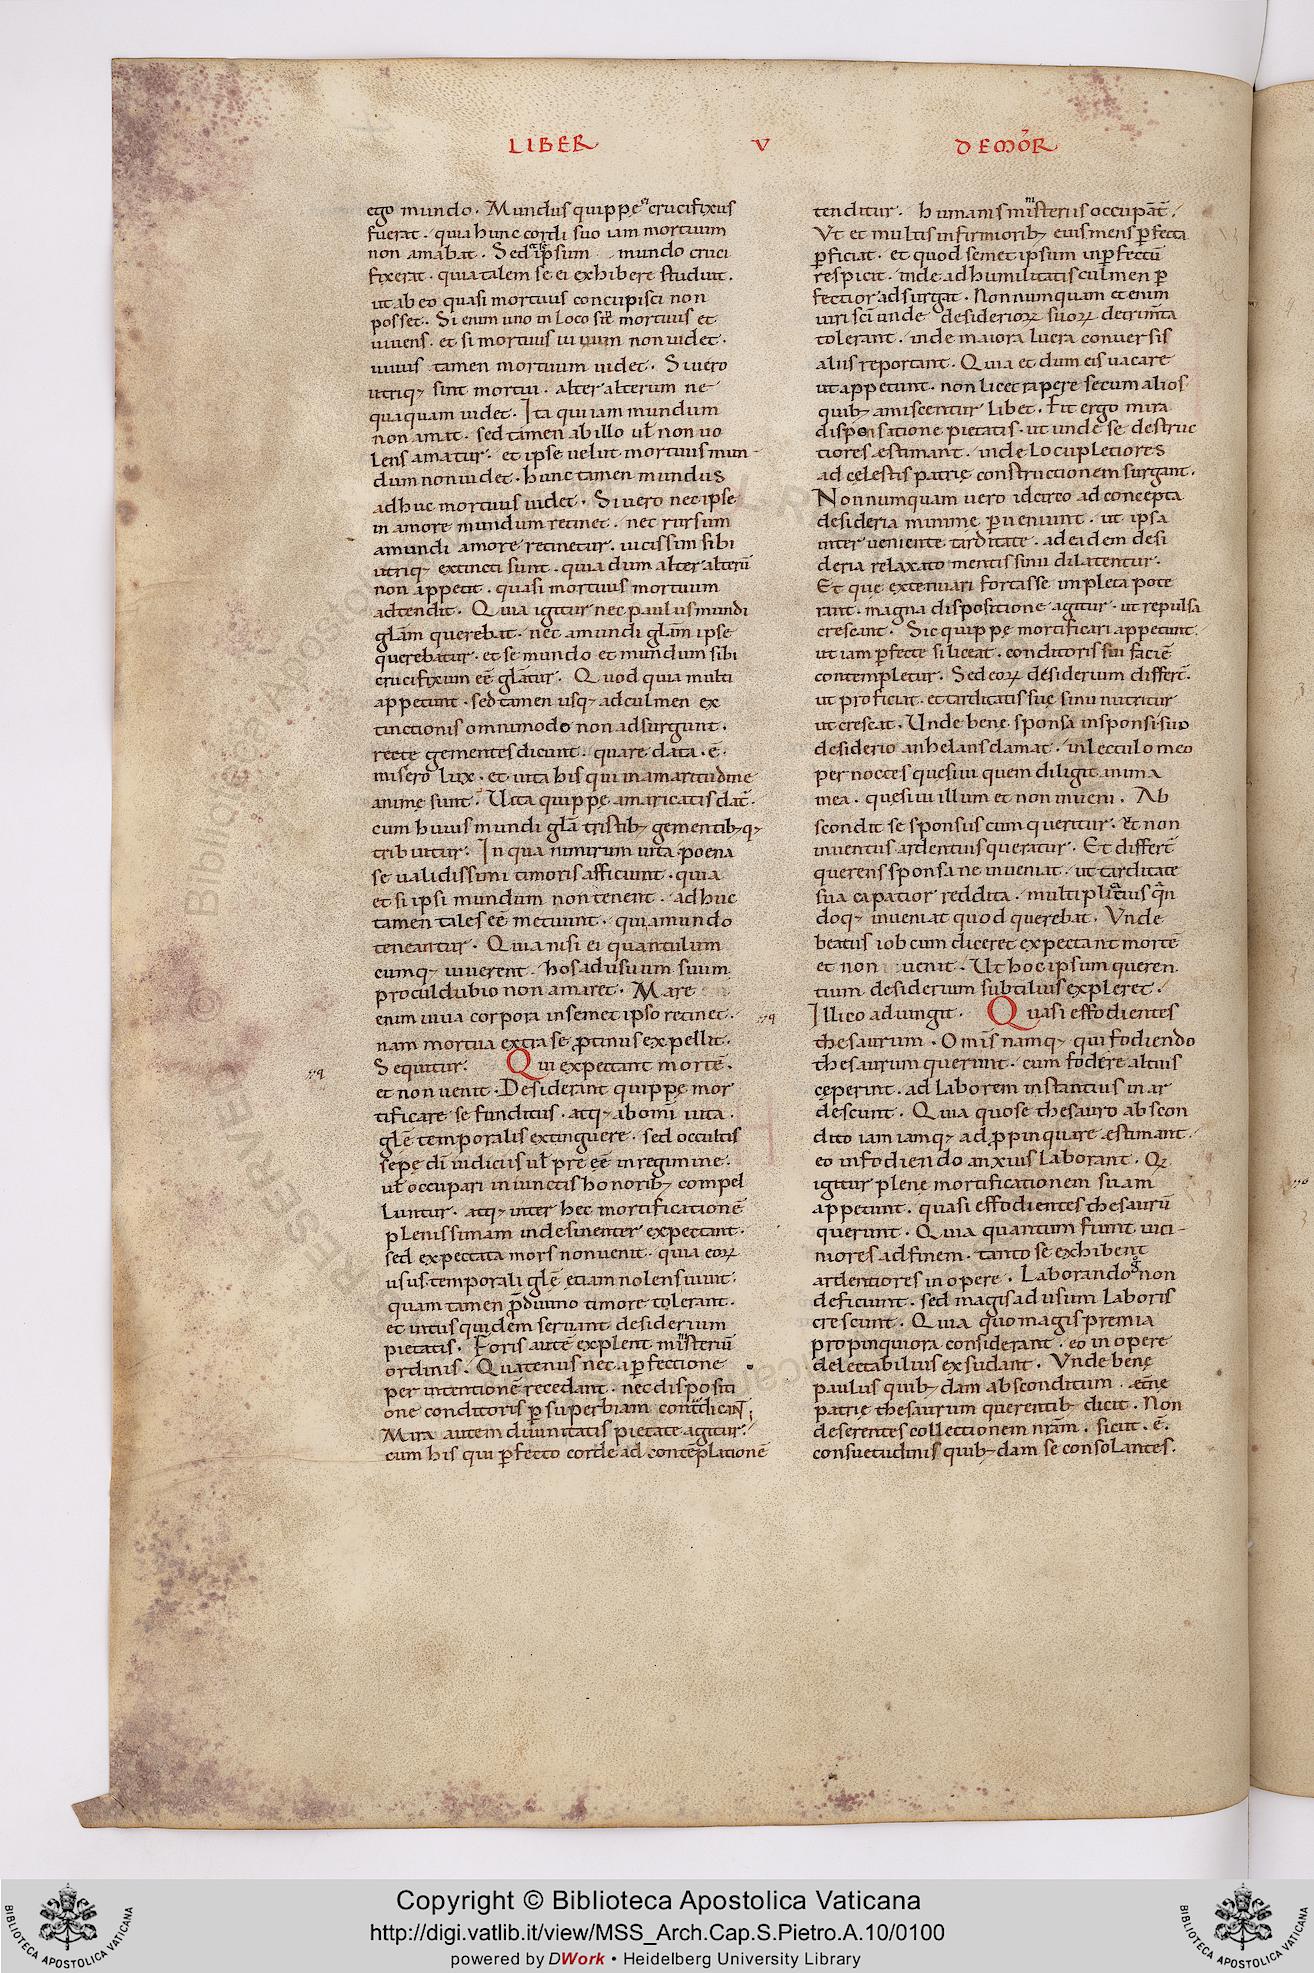 LIBER V DE MOR̄
ego mundo. Mundus quippe ei crucifixus
fuerat. quia hunc cordi suo iam mortuum
non amabat. Sed & se ipsum mundo cruci
fixerat. quia talem se ei exhibere studuit.
ut ab eo quasi mortuus concupisci non
posset. Si enim uno in loco sit mortuus et
uiuens. et si mortuus uiuum non uidet.
uiuus tamen mortuum uidet. Si uero
utriq; sint mortui. alter alterum ne
quaquam uidet. Ita qui iam mundum
non amat. sed tamen ab illo ul̄ non uo
lens amatur. et ipse uelut mortuus mun-
dum non uidet. hunc tamen mundus
adhuc mortuus uidet. Si uero nec ipse
in amore mundum retinet. nec rursum
a mundi amore retinetur. uicissim sibi
utriq; extincti sunt. quia dum alter alterū
non appetit. quasi mortuus mortuum
adtendit. Quia igitur nec paulus mundi
glām querebat. nec a mundi glām ipse
querebatur. et se mundo et mundum sibi
crucifixum eē glātur. Quod quia multi
appetunt. sed tamen usq; ad culmen ex
tinctionis omnimodo non adsurgunt.
recte gementes dicunt. quare data. ē.
misero lux. et uita his qui in amaritudine
anime sunt. Uita quippe amaricatis dat̄.
cum huius mundi glā tristib; gementib;q;
tribuitur. In qua nimirum uita poena
se ualidissimi timoris afficiunt. quia
et si ipsi mundum non tenent. adhuc
tamen tales eē metuunt. qui a mundo
teneantur. Quia nisi ei quantulum
cumq; uiuerent. hos ad usum suum
procul dubio non amaret. Mare
enim uiua corpora in semet ipso retinet.
nam mortua extra se ꝓtinus expellit.
Sequitur. Qui expectant mortē.
et non uenit. Desiderant quippe mor
tificare se funditus. atq; ab omi uita.
glē temporalis extinguere. sed occultis
sepe dī iudiciis ul̄ pre eē in regimine.
ul̄ occupari iniunctis honorib; compel
luntur. atq; inter hec mortificationē
plenissimam indesinenter expectant.
sed expectata mors non uenit. quia eoꝝ
usus temporali glē etiam nolens uiuit.
quam tamen ꝓ diuino timore tolerant.
et intus quidem seruant desiderium
pietatis. Foris autē explent ministeriū
ordinis. Quatenus nec a ꝑfectione
per intentionē recedant. nec dispositi
one conditoris ꝑ superbiam contradicant;
Mira autem diuinitatis pietate agitur.
cum his qui ꝑfecto corde ad contēplationē
tenditur. humanis ministeriis occupat̄.
Ut et multis infirmiorib; eius mens ꝑfecta
ꝓficiat. et quod semet ipsum inꝑfectū
respicit. inde ad humilitatis culmen ꝑ
fectior adsurgat. Nonnumquam etenim
uiri sc̄i unde desiderioꝝ suoꝝ detrimta
tolerant. inde maiora lucra conuersis
aliis reportant. Quia et dum eis uacare
ut appetunt. non licet rapere secum alios
quib; amiscentur libet. Fit ergo mira
dispensatione pietatis. ut unde se destruc
tiores estimant. inde locupletiores
ad celestis patrie constructionem surgant.
Nonnumquam uero idcirco ad concepta
desideria minime ꝑueniunt. ut ipsa
interueniente tarditate. ad eidem desi
deria relaxato mentis sinu dilatentur.
Et que extenuari fortasse impleta pote
rant. magna dispositione agitur. ut repulsa
crescant. Sic quippe mortificari appetunt.
ut iam ꝑfecte si liceat. conditoris sui faciē
contempletur. Sed eoꝝ desiderium differt̄.
ut proficiat. et tarditatis sue sinu nutritur
ut crescat. Unde bene sponsa in sponsi sui
desiderio anhelans clamat. in lectulo meo
per noctes quesiui quem diligit anima
mea. quesiui illum et non inueni. Ab
scondit se sponsus cum queritur. et non
inuentus ardentius queratur. Et differt̄
querens sponsa ne inueniat. ut tarditate
sua capatior reddita. multiplicatius qn̄
doq; inueniat quod querebat. Unde
beatus iob cum diceret expectant mortē
et non uenit. Ut hoc ipsum queren
tium desiderium subtilius expleret.
Illico adiungit. Quasi effodientes
thesaurum. Omīs namq; qui fodiendo
thesaurum querunt. cum fodere altius
ceperint. ad laborem instantius inar
descunt. Quia quo se thesauro abscon
dito iam iamq; adꝓpinquare estimant.
eo in fodiendo anxius laborant. Qꝫ
igitur plene mortificationem suam
appetunt. quasi effodientes thesaurū
querunt. Quia quantum fiunt uici-
niores ad finem. tanto se exhibent
ardentiores in opere. Laborando g° non
deficiunt. sed magis ad usum laboris
crescunt. Quia quo magis premia
propinquiora considerant. eo in opere
delectabilius exsudant. Unde bene
paulus quib;dam absconditum. et̄ne
patrie thesaurum querentib; dicit. Non
deserentes collectionem nr̄am. sicut. ē.
consuetudinis quib;dam se consolantes.
Copyright © Biblioteca Apostolica Vaticana
http://digi.vatlib.it/view/MSS_Arch.Cap.S.Pietro.A.10/0100
powered by DWork • Heidelberg University Library
BIBLIOTECA APOSTOLICA VATICANA
BIBLIOTECA APOSTOLICA VATICANA